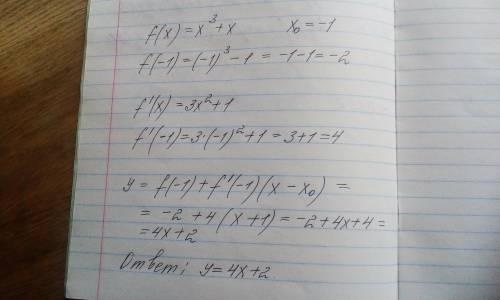 f(x) = x³ + x    x₀ = -1
f(-1) = (-1)³ - 1 = -1 - 1 = -2
f'(x) = 3x² + 1
f'(-1) = 3·(-1)² + 1 = 3 + 1 = 4
y = f(-1) + f'(-1)(x - x₀) =
= -2 + 4(x + 1) = -2 + 4x + 4 =
= 4x + 2
Ответ: y = 4x + 2